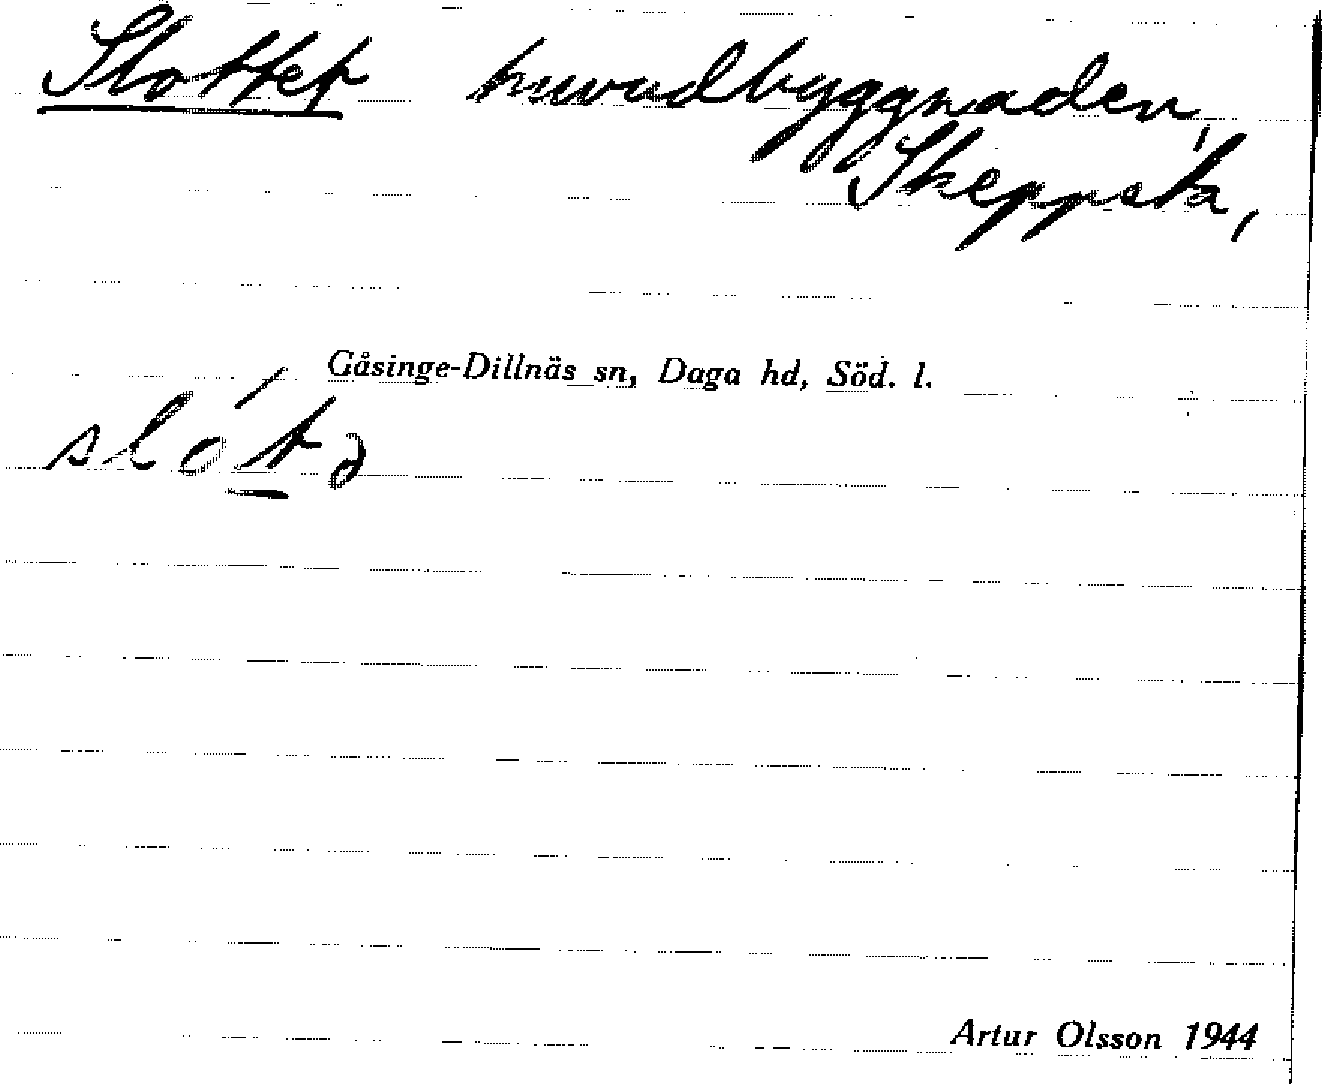 Slottet huvudbyggnaden,
Skeppsta,
Gåsinge-Dillnäs sn, Daga hd, Söd. l.
slót̲ə
Artur Olsson 1944